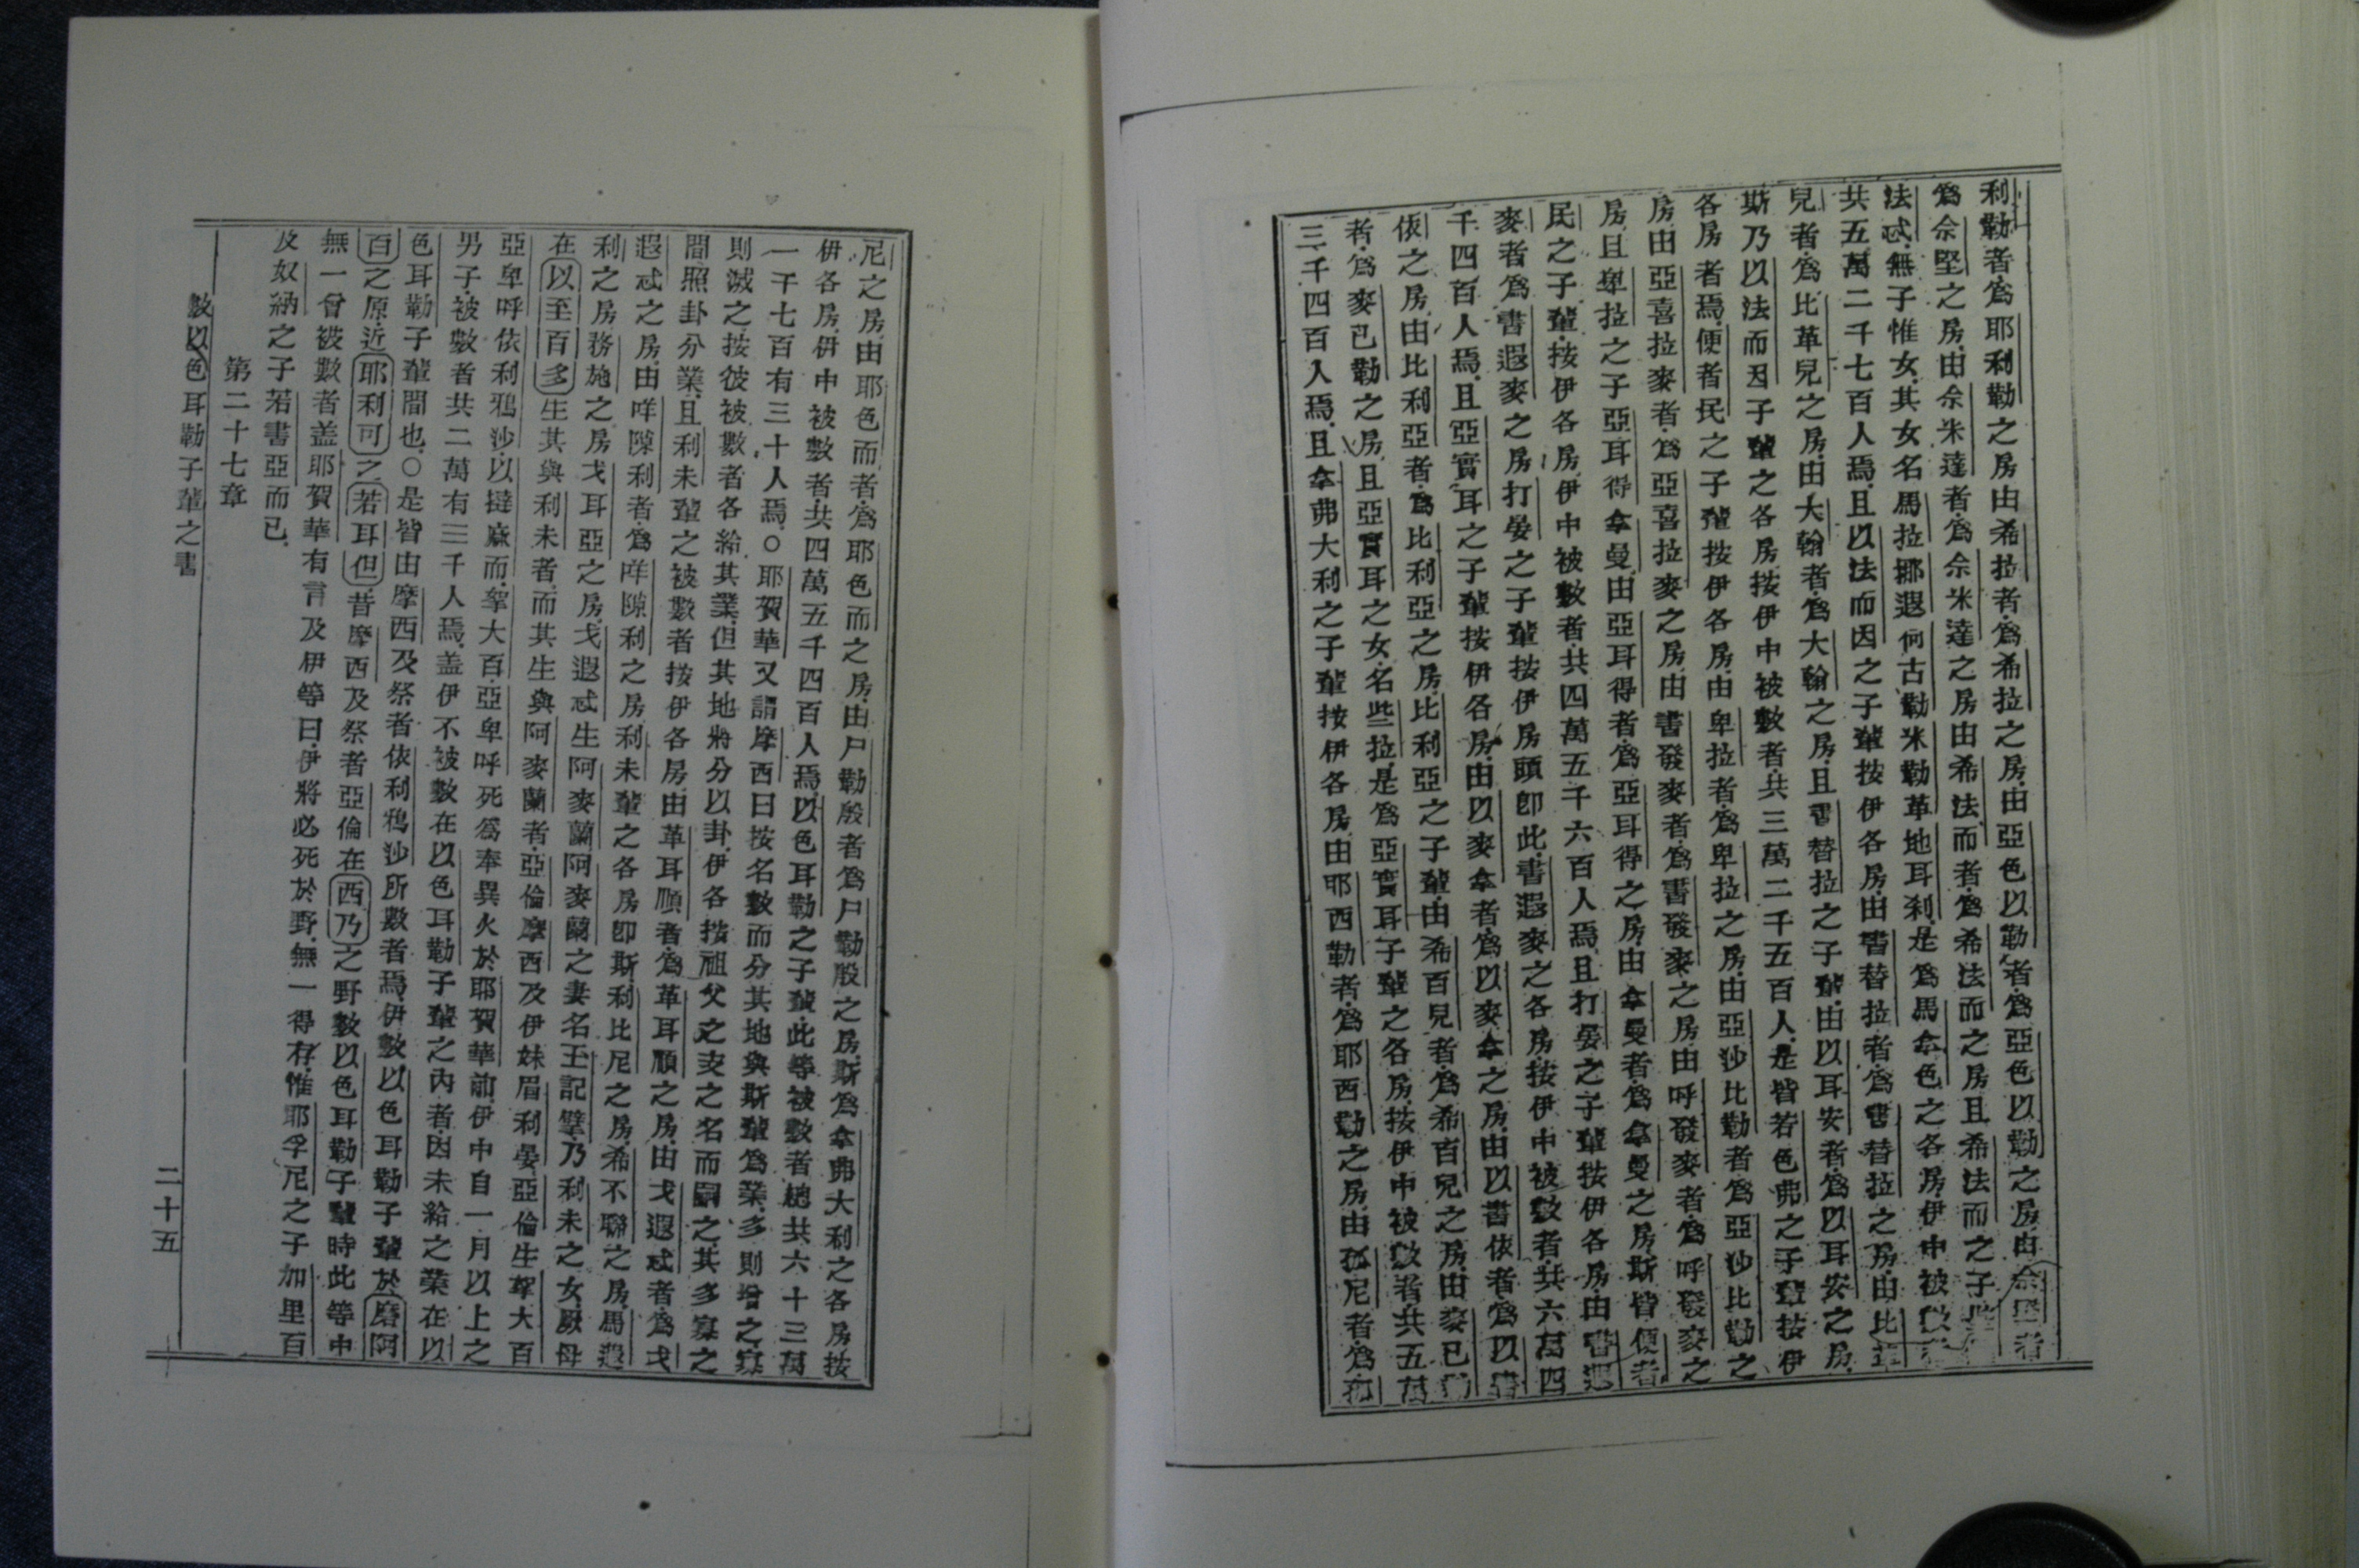 利勒者爲耶利勒之房由希拉者爲希拉之房由亞色以勒者爲亞色以勒之房由
爲佘堅之房由佘米達者爲佘米達之房由希法而者爲希法而之房且希法而之子
法忒無子惟女其女名馬拉挪遐何古勒米勒革地耳剎是爲馬拿色之各房伊中被
共五萬二千七百人焉且以法而因之子輩按伊各房由書替拉者爲書替拉之房由比革
兒者爲比革兒之房由大翰者爲大翰之房且書替拉之子輩由以耳安者爲以耳安之房
斯乃以法而因子輩之各房按伊中被數者共三萬二千五百人是皆若色弗之子輩按伊
各房者焉便者民之子輩按伊各房由卑拉者爲卑拉之房由亞沙比勒者爲亞沙比勒之
房由亞喜拉麥者爲亞喜拉麥之房由書發麥者爲書發麥之房由呼發麥者爲呼發麥之
房且卑拉之子亞耳得拿曼由亞耳得者爲亞耳得之房由拿曼者爲拿曼之房斯皆便者
民之子輩按伊各房伊中被數者共四萬五千六百人焉且打晏之子輩按伊各房由書遐
麥者爲書遐麥之房打晏之子輩按伊房頭卽此書遐麥之各房按伊中被數者共六萬四
千四百人焉且亞實耳之子輩按伊各房由以麥拿者爲以麥拿之房由以書依者爲以書
依之房由比利亞者爲比利亞之房比利亞之子輩由希百兒者爲希百兒之房由麥已勒
者爲麥已勒之房且亞實耳之女名些拉是爲亞實耳子輩之各房按伊中被數者共五萬
三千四百人焉且拿弗大利之子輩按伊各房由耶西勒者爲耶西勒之房由孤尼者爲孤
尼之房由耶色而者爲耶色而之房由尸勒殷者爲尸勒殷之房斯爲拿弗大利之各房按
伊各房伊中被數者共四萬五千四百人焉以色耳勒之子輩此等被數者總共六十三萬
一千七百有三十人焉○耶賀華又謂摩西曰按名數而分其地與斯輩爲業多則增之寡
則減之按彼被數者各給其業但其地將分以卦伊各按祖父之支之名而嗣之其多寡之
間照卦分業且利未輩之被數者按伊各房由革耳順者爲革耳順之房由戈遐忒者爲戈
遐忒之房由咩隙利者爲咩隙利之房利未輩之各房卽斯利比尼之房希不聯之房馬遐
利之房務施之房戈耳亞之房戈遐忒生阿麥蘭阿麥蘭之妻名王記擘乃利未之女厥母
在以至百多生其與利未者而其生與阿麥蘭者亞倫摩西及伊妹眉利晏亞倫生拏大百
亞卑呼依利鴉沙以撻麻而拏大百亞卑呼死爲奉異火於耶賀華前伊中自一月以上之
男子被數者共二萬有三千人焉盖伊不被數在以色耳勒子輩之內者因未給之業在以
色耳勒子輩間也○是皆由摩西及祭者依利鴉沙所數者焉伊數以色耳勒子輩於磨阿
百之原近耶利可之若耳但昔摩西及祭者亞倫在西乃之野數以色耳勒子輩時此等中
無一曾被數者盖耶賀華有言及伊等曰伊將必死於野無一得存惟耶孚尼之子加里百
及奴納之子若書亞而已
第二十七章
數以色耳勒子輩之書 二十五